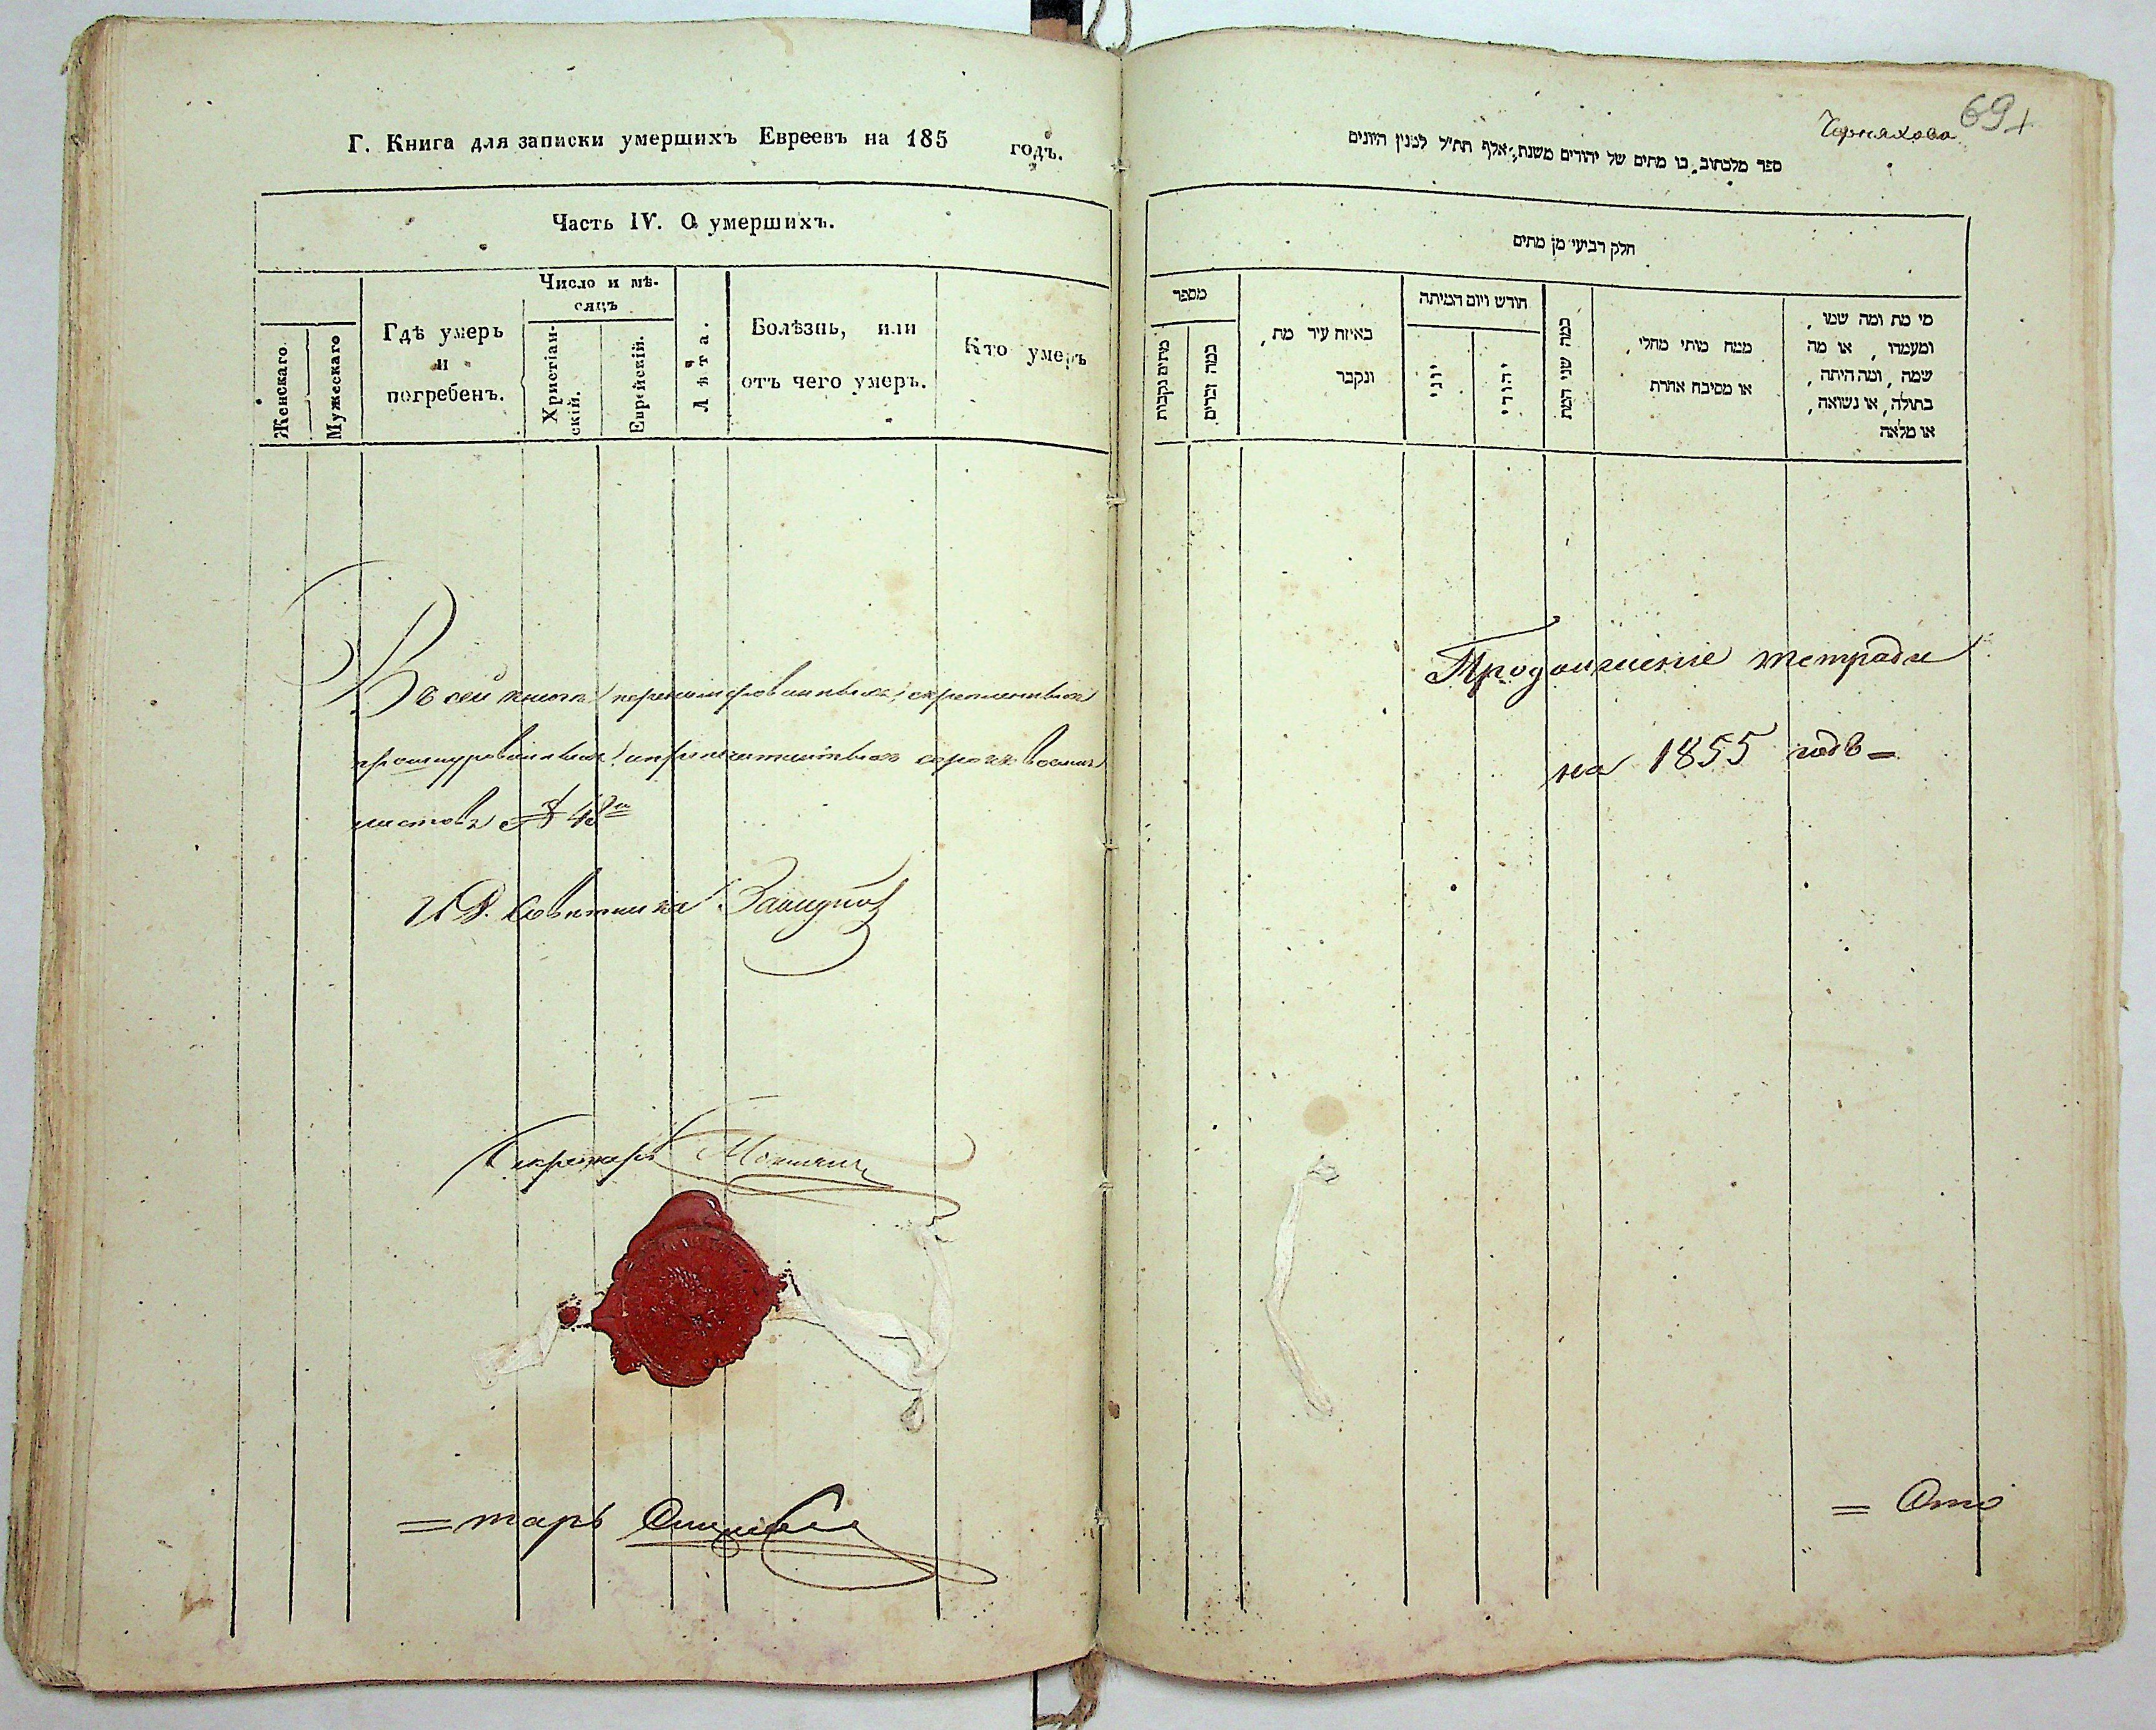 Г. Книга для записки умершихъ Евреевъ на 185 годъ.
Часть IV. О умершихъ.
Женскаго
Мужескаго
Гдѣ умеръ
и
погребенъ.
Число и мѣ-
сяцъ
Христіан-
скій.
Еврейскій.
Лѣта.
Болѣзнь, или
отъ чего умеръ.
Кто умеръ
Въ сей книгѣ перенумерованныхъ, скрепленныхъ
прошнурованныхъ и припечатанныхъ сорокъ восемь
листовъ № 48
И. Д. Совѣтника
Секретарь
= тарь
69
Черняхова
ספר מלכתוב בו מתים של יהודים משנת אלף תת״ל למנין היונים
חלק רביעי מן מתים
מספר
מתים נקבות
כמה זכרים
באיזה עיר מת,
ונקבר
חודש ויום המיתה
יוני
יהודי
כמה שני המת
ממה מותי מחלי,
או מסיבה אחרת
מי מת ומה שמו,
ומעמדו, או מה
שמה, ומה היתה,
בתולה, או נשואה,
או מלאה
Продолженіе тетради
на 1855 годъ =
= Ото